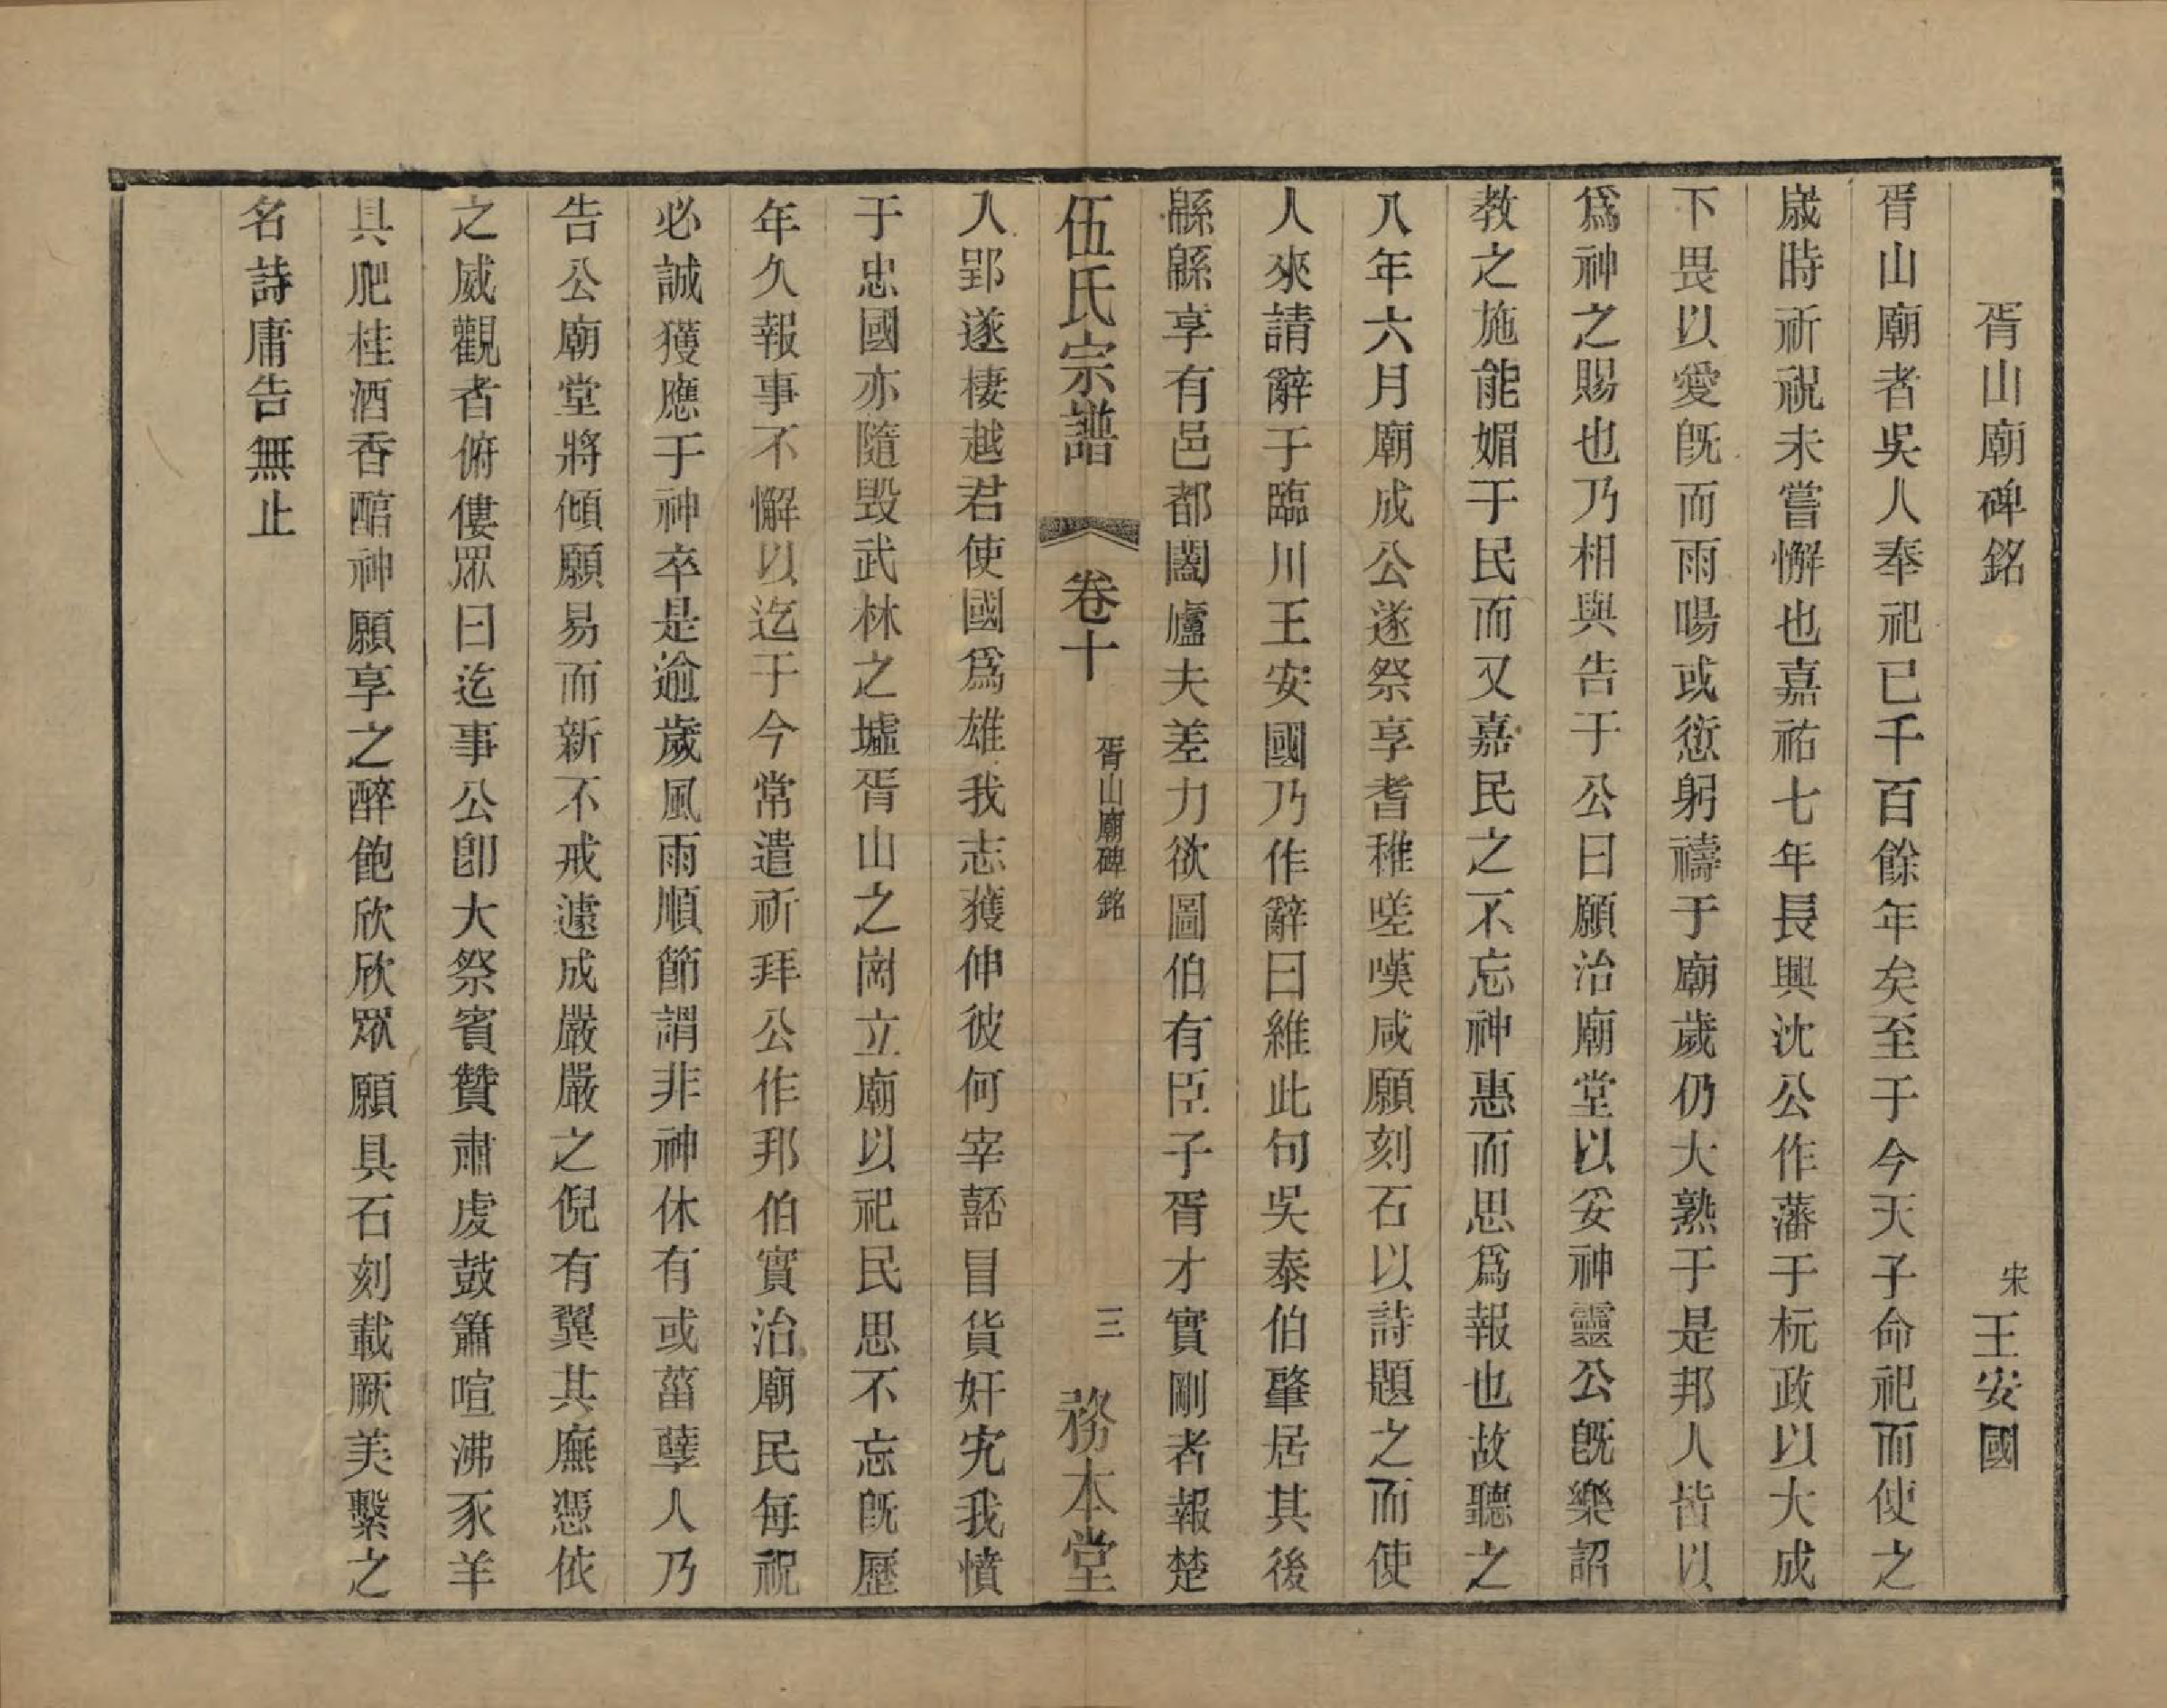 胥山廟碑銘 宋王安國
胥山廟者吳人奉祀已千百餘年矣至于今天子命祀而使之
歲時祈祝未嘗懈也嘉祐七年長興沈公作藩于杬政以大成
下畏以愛旣而雨暘或愆躬禱于廟歲仍大熟于是邦人皆以
爲神之賜也乃相與告于公曰願治廟堂以妥神靈公旣樂詔
教之施能媚于民而又嘉民之不忘神惠而思爲報也故聽之
八年六月廟成公遂祭享耆稚嗟嘆咸願刻石以詩題之而使
人來請辭于臨川王安國乃作辭曰維此句吳泰伯肇居其後
緜緜享有邑都闔廬夫差力欲圖伯有臣子胥才實剛者報楚
伍氏宗譜 卷十 胥山廟碑銘 三 務本堂
入郢遂棲越君使國爲雄我志獲伸彼何宰嚭冒貨奸宄我憤
于忠國亦隨毀武林之墟胥山之崗立廟以祀民思不忘旣歷
年久報事不懈以迄于今常遣祈拜公作邦伯實治廟民每祝
必誠獲應于神卒是逾歲風雨順節謂非神休有或菑孽人乃
告公廟堂將傾願易而新不戒遽成嚴嚴之倪有翼其廡憑依
之威觀者俯僂眾曰迄事公卽大祭賓贊肅虔鼓簫喧沸豕羊
具肥桂酒香醅神願享之醉飽欣欣眾願具石刻載厥美繫之
名詩庸告無止